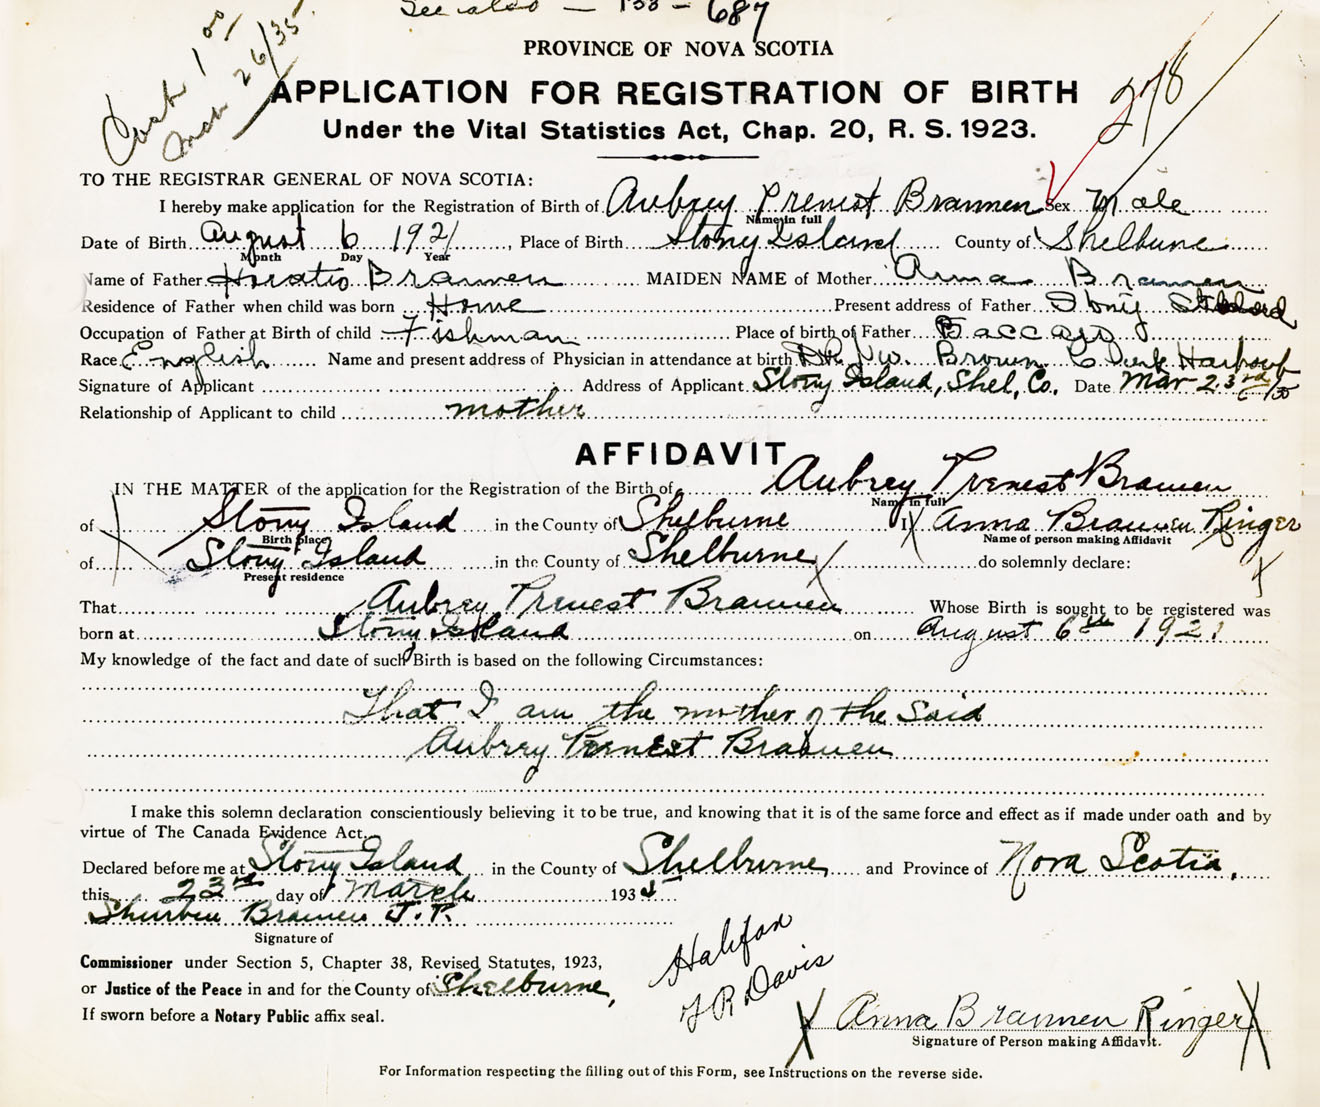 See also - 133 - 687
Cash 1.00
Mar 26/35
PROVINCE OF NOVA SCOTIA
APPLICATION FOR REGISTRATION OF BIRTH
278
Under the Vital Statistics Act, Chap. 20, R. S. 1923.
TO THE REGISTRAR GENERAL OF NOVA SCOTIA:
I hereby make application for the Registration of Birth of Aubrey Prenest Brannen Sex Male
Name in full
Date of Birth August 6 1921, Place of Birth Stony Island County of Shelburne
Month Day Year
Name of Father Horatio Brannen MAIDEN NAME of Mother Anna Brannen
Residence of Father when child was born Home Present address of Father Stony Island
Occupation of Father at Birth of child Fishman Place of birth of Father Baccaro
Race English Name and present address of Physician in attendance at birth DR. J. W. Brown Clark Harbour
Signature of Applicant Address of Applicant Stony Island, Shel, Co. Date Mar 23rd /35
Relationship of Applicant to child mother
AFFIDAVIT
IN THE MATTER of the application for the Registration of the Birth of Aubrey Prenest Brannen
Name in full
of Stony Island in the County of Shelburne I Anna Brannen Ringer
Birth place Name of person making Affidavit
of Stony Island in the County of Shelburne do solemnly declare:
Present residence
That Aubrey Prenest Brannen Whose Birth is sought to be registered was
born at Stony Island on August 6th 1921
My knowledge of the fact and date of such Birth is based on the following Circumstances:
That I am the mother of the Said
Aubrey Prenest Brannen
I make this solemn declaration conscientiously believing it to be true, and knowing that it is of the same force and effect as if made under oath and by
virtue of The Canada Evidence Act.
Declared before me at Stony Island in the County of Shelburne and Province of Nova Scotia.
this 23rd day of March 1935
Brannen J.P.
Signature of
Commissioner under Section 5, Chapter 38, Revised Statutes, 1923,
or Justice of the Peace in and for the County of Shelburne,
If sworn before a Notary Public affix seal.
Halifax
J R Davis
X Anna Brannen Ringer X
Signature of Person making Affidavit.
For Information respecting the filling out of this Form, see Instructions on the reverse side.